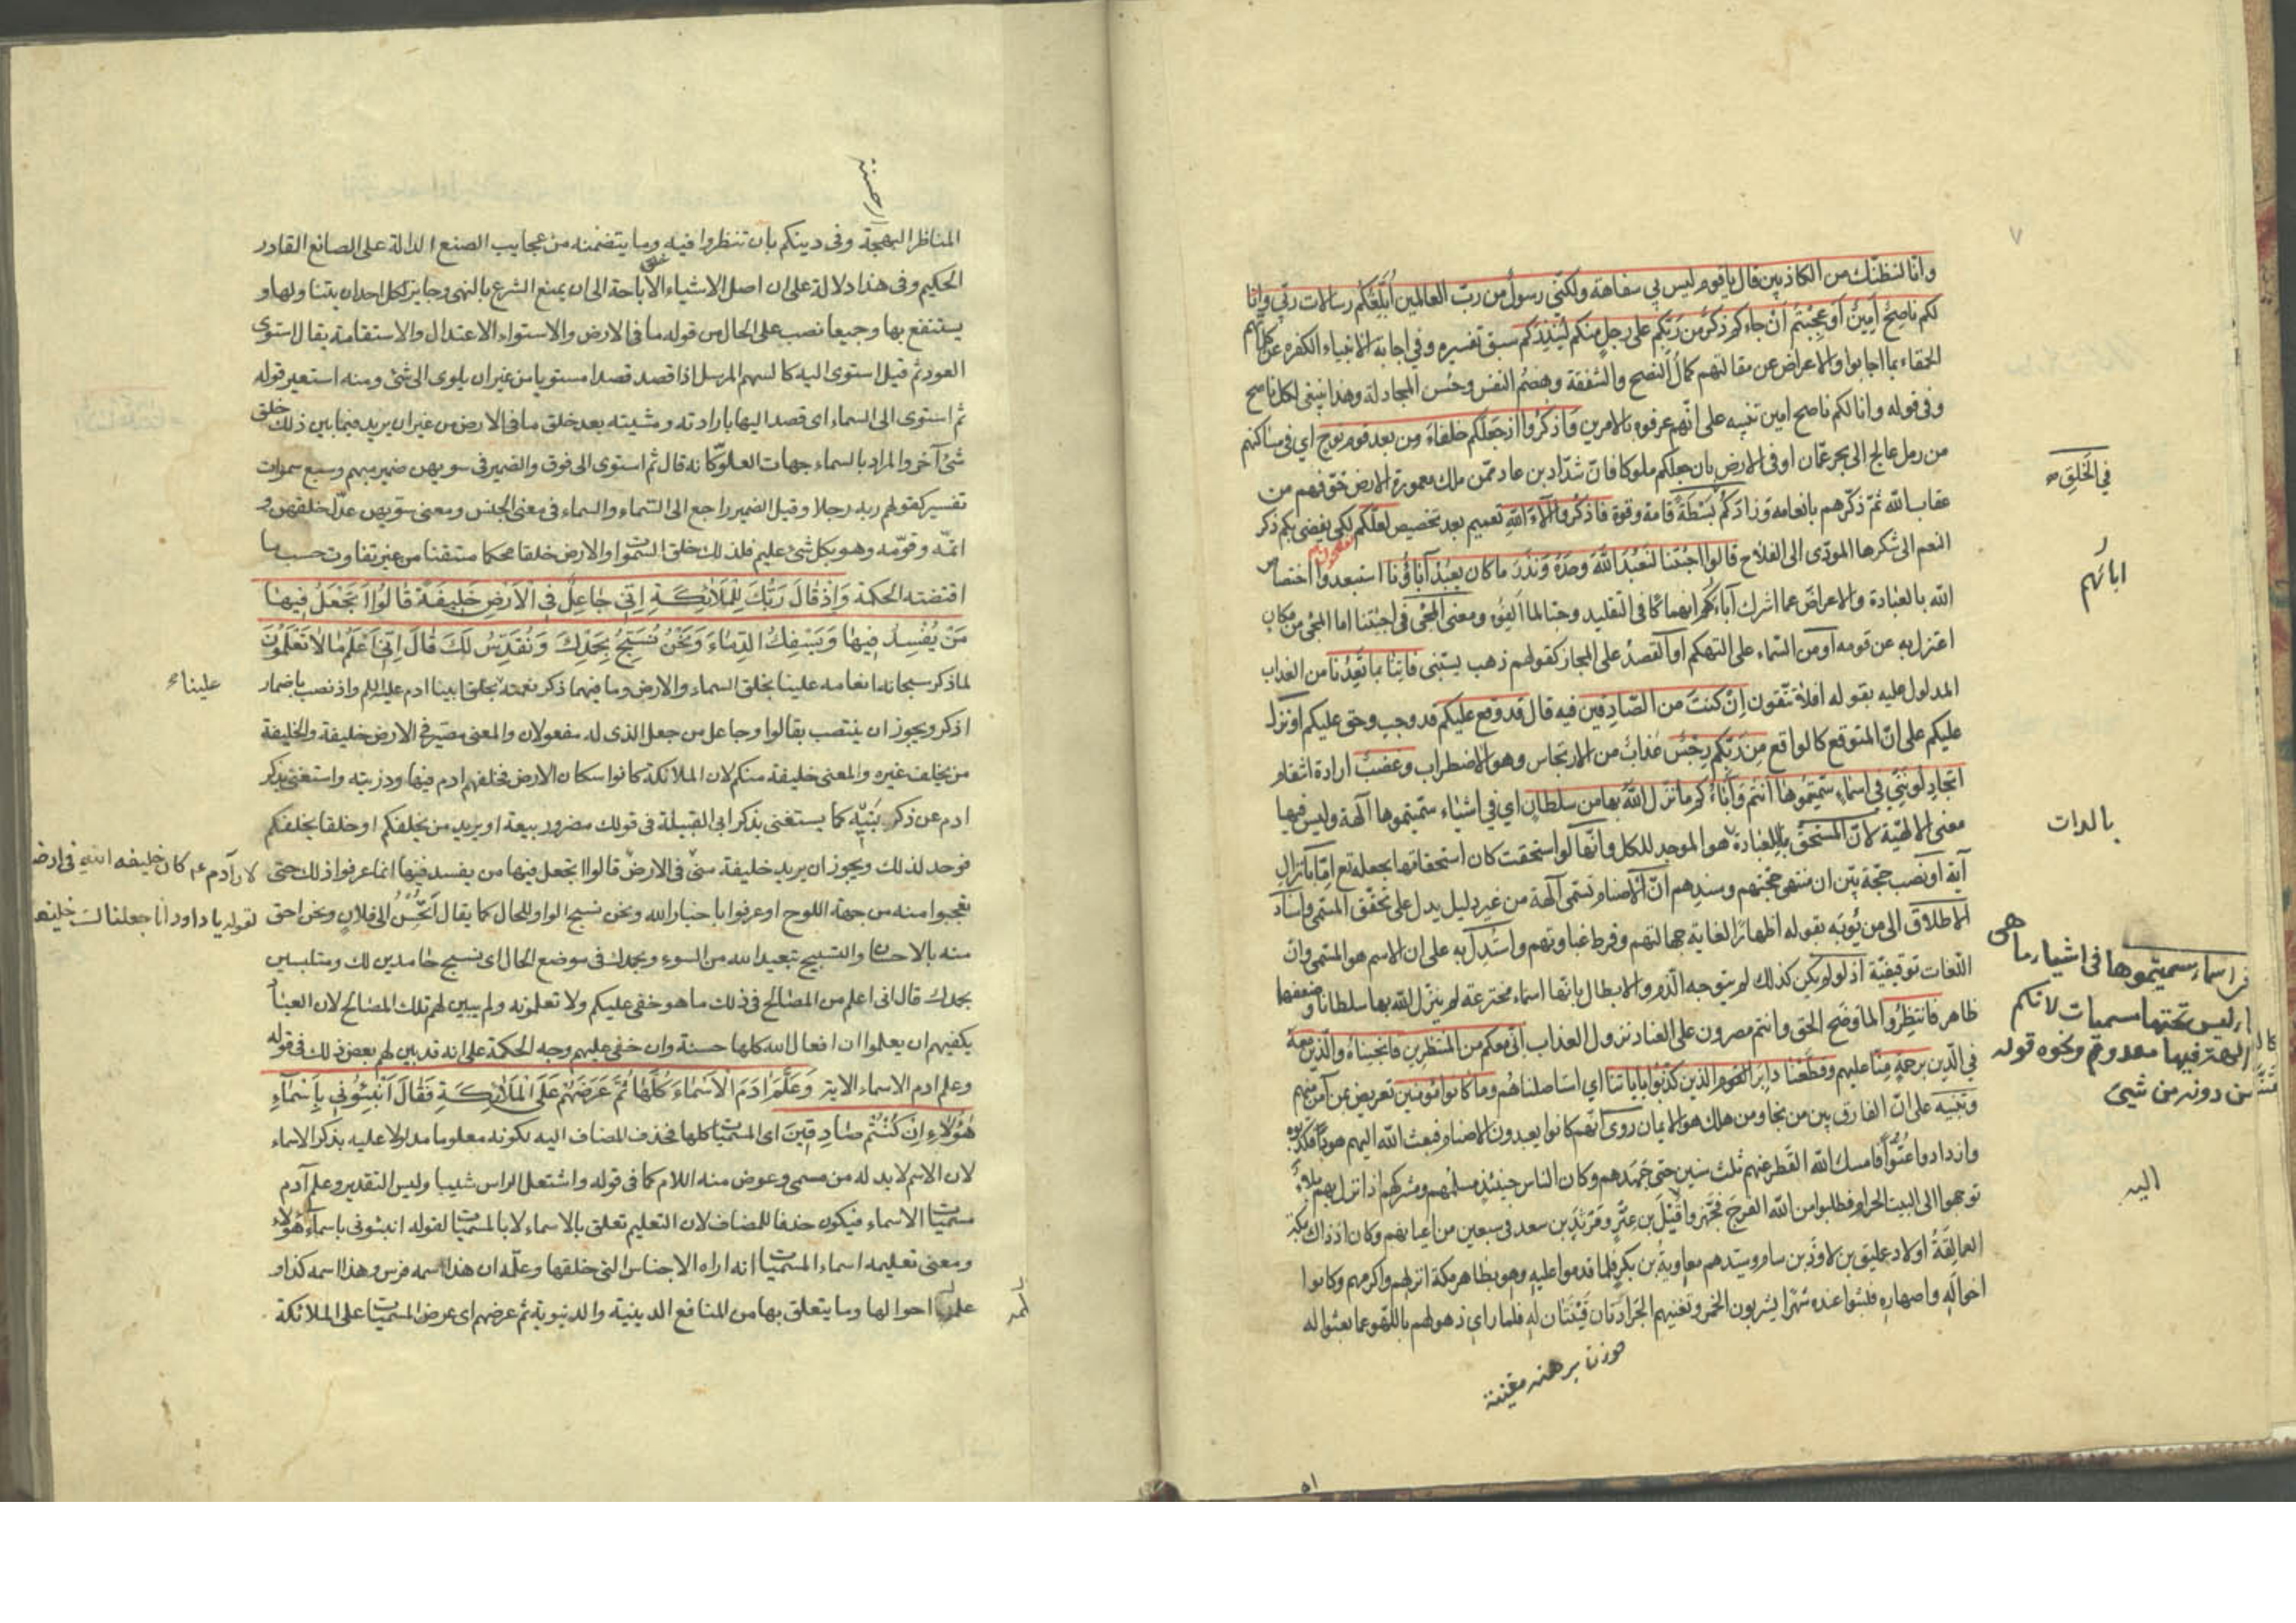 وانا لنظنك من الكاذبين قال يا قوم ليس بي سفاهة ولكني رسول من رب العالمين ابلغكم رسالات ربي وانا
لكم ناصح امين او عجبتم ان جاءكم ذكر من ربكم على رجل منكم لينذركم سبق تفسيره وفي اجابة الانبياء الكفره عن كلماتهم
الحمقاء بما اجابوا والاعراض عن مقالتهم كمال النصح والشفقة وهضم النفس وحسن المجادلة وهذا ينبغي لكل ناصح
وفي قوله وانا لكم ناصح امين تنبيه على انهم عرفوه بالامرين واذكروا اذ جعلكم خلفاء من بعد قوم نوح اي في مساكنهم
من رمل عالج الى بحر عمان او في الارض بان جعلكم ملوكا فان شداد بن عاد ممن ملك معمورة الارض خوفهم من
عقاب الله ثم ذكرهم بانعامه وزادكم في الخلق بسطة قامة وقوة فاذكروا آلاء الله تعميم بعد تخصيص لعلكم تفلحون لكي يفضي بكم ذكر
النعم الى شكرها المودي الى الفلاح قالوا اجئتنا لنعبد الله وحده ونذر ما كان يعبد آباؤنا استبعدوا اختصاص
الله بالعبادة والاعراض عما اشرك آباءهم انهماكا في التقليد وحبا لما الفوه ومعنى المجئ في اجئتنا اما المجئ من مكان
اعتزل به عن قومه او من السماء على التهكم او القصد على المجاز كقولهم ذهب يسبني فاتنا بما تعدنا من العذاب
المدلول عليه بقوله افلا تتقون ان كنت من الصادقين فيه قال قد وقع عليكم قد وجب وحق عليكم او نزل
عليكم على ان المتوقع كالواقع من ربكم رجس عذاب من الارتجاس وهو الاضطراب وغضب ارادة انتقام
اتجادلونني في اسماء سميتموها انتم وآباؤكم ما نزل الله بها من سلطان اي في اشياء سميتموها آلهة وليس فيها
معنى الالهية لان المستحق للعبادة بالذات هو الموجد للكل وانها لو استحقت كان استحقاقها بجعله تع اما بانزال
آية او نصب حجة بين ان منتهى حجتهم وسندهم ان الاصنام تسمى آلهة من غير دليل يدل على تحقق المسمى واسناد
الاطلاق الى من لا يؤبه بقوله اظهارا لغاية جهالتهم وفرط غباوتهم واستدل به على ان الاسم هو المسمى وان
اللغات توقيفية اذ لو لم يكن كذلك لم يتوجه الذم والابطال بانها اسماء مخترعة لم ينزل الله بها سلطانا وضعفها
ظاهر فانتظروا لما وضح الحق وانتم مصرون على العناد نزول العذاب اني معكم من المنتظرين فانجيناه والذين معه
في الدين برحمة منا عليهم وقطعنا دابر القوم الذين كذبوا باياتنا اي استاصلناهم وما كانوا مؤمنين تعريض بمن آمن منهم
وتنبيه على ان الفارق بين من نجا ومن هلك هو الايمان روى انهم كانوا يعبدون الاصنام فبعث الله اليهم هودا فكذبوه
وازدادوا عتوا فامسك الله القطر عنهم ثلث سنين حتى جهدهم وكان الناس حينئذ مسلمهم ومشركهم اذا نزل بهم بلاء
توجهوا الى البيت الحرام فطلبوا من الله الفرج فجهزوا اليه قيل بن عنز ومرثد بن سعد في سبعين من اعيانهم وكان اذ ذاك بمكة
العمالقة اولاد عمليق بن لاوذ بن سام وسيدهم معاوية بن بكر فلما قدموا عليه وهو بظاهر مكة انزلهم واكرمهم وكانوا
اخواله واصهاره فلبثوا عنده شهرا يشربون الخمر وتغنيهم الجرادتان قينتان له فلما راى ذهولهم باللهو عما بعثوا له
في الخلق
ابائهم
بالذات
اليه
المناظر البهجة وفي دينكم بان تنظروا فيه وما يتضمنه من عجايب الصنع الدالة على الصانع القادر
الحكيم وفي هذا دلالة على ان اصل الاشياء الاباحة الى ان يمنع الشرع بالنهي وجايز لكل احد ان يتناولها و
يستنفع بها وجميعا نصب على الحال من قوله ما في الارض والاستواء الاعتدال والاستقامة يقال استوى
العود ثم قيل استوى اليه كالسهم المرسل اذا قصد قصدا مستويا من غير ان يلوى الى شئ ومنه استعير قوله
ثم استوى الى السماء اى قصد اليها بارادته ومشيته بعد خلق ما في الارض من غير ان يريد فيما بين ذلك خلق
شئ آخر والمراد بالسماء جهات العلو كانه قال ثم استوى الى فوق والضمير في سويهن ضمير مبهم وسبع سموات
تفسير كقولهم ربه رجلا وقيل الضمير راجع الى السماء والسماء في معنى الجنس ومعنى سويهن عدل خلقهن و
اتمه وقومه وهو بكل شئ عليم فلذلك خلق السموات والارض خلقا محكما متقنا من غير تفاوت حسب ما
اقتضته الحكمة واذ قال ربك للملائكة اني جاعل في الارض خليفة قالوا اتجعل فيها
من يفسد فيها ويسفك الدماء ونحن نسبح بحمدك ونقدس لك قال اني اعلم ما لا تعلمون
لما ذكر سبحانه انعامه علينا بخلق السماء والارض وما فيهما ذكر نعمته بخلق ابينا ادم عليه السلم واذ نصب باضمار
اذكر ويجوز ان ينتصب بقالوا وجاعل من جعل الذى له مفعولان والمعنى مصير في الارض خليفة والخليفة
من يخلف غيره والمعنى خليفة منكم لان الملائكة كانوا سكان الارض فخلفهم ادم فيها وذريته واستغنى بذكر
ادم عن ذكر بنيه كما يستغنى بذكر ابى القبيلة في قولك مضر وربيعة او يريد من يخلفكم او خلقا يخلفكم
فوحد لذلك ويجوز ان يريد خليفة منى في الارض قالوا اتجعل فيها من يفسد فيها انما عرفوا ذلك حتى
تعجبوا منه من جهة اللوح او عرفوا باخبار الله ونحن نسبح الواو للحال كما يقال اتحسن الى فلان ونحن احق
منه بالاحسان والتسبيح تبعيد الله من السوء وبحمدك في موضع الحال اى نسبح حامدين لك ومتلبسين
بحمدك قال انى اعلم من المصالح في ذلك ما هو خفى عليكم ولا تعلمونه ولم يبين لهم تلك المصالح لان العباد
يكفيهم ان يعلموا ان افعال الله كلها حسنة وان خفى عليهم وجه الحكمة على انه قد بين لهم بعض ذلك في قوله
وعلم ادم الاسماء الاية وعلم ادم الاسماء كلها ثم عرضهم على الملائكة فقال انبئوني باسماء
هؤلاء ان كنتم صادقين اى المسميات كلها فحذف المضاف اليه لكونه معلوما مدلولا عليه بذكر الاسماء
لان الاسم لا بد له من مسمى وعوض منه اللام كما في قوله واشتعل الراس شيبا وليس التقدير وعلم آدم
مسميات الاسماء فيكون حذفا للمضاف لان التعليم تعلق بالاسماء لا بالمسميات لقوله انبئونى باسماء هؤلاء
ومعنى تعليمه اسماء المسميات انه اراه الاجناس التي خلقها وعلمه ان هذا اسمه فرس وهذا اسمه كذا و
علمه احوالها وما يتعلق بها من المنافع الدينية والدنيوية ثم عرضهم اى عرض المسميات على الملائكة
علينا
لان آدم ع كان خليفة الله في ارضه
لقوله يا داود انا جعلناك خليفة